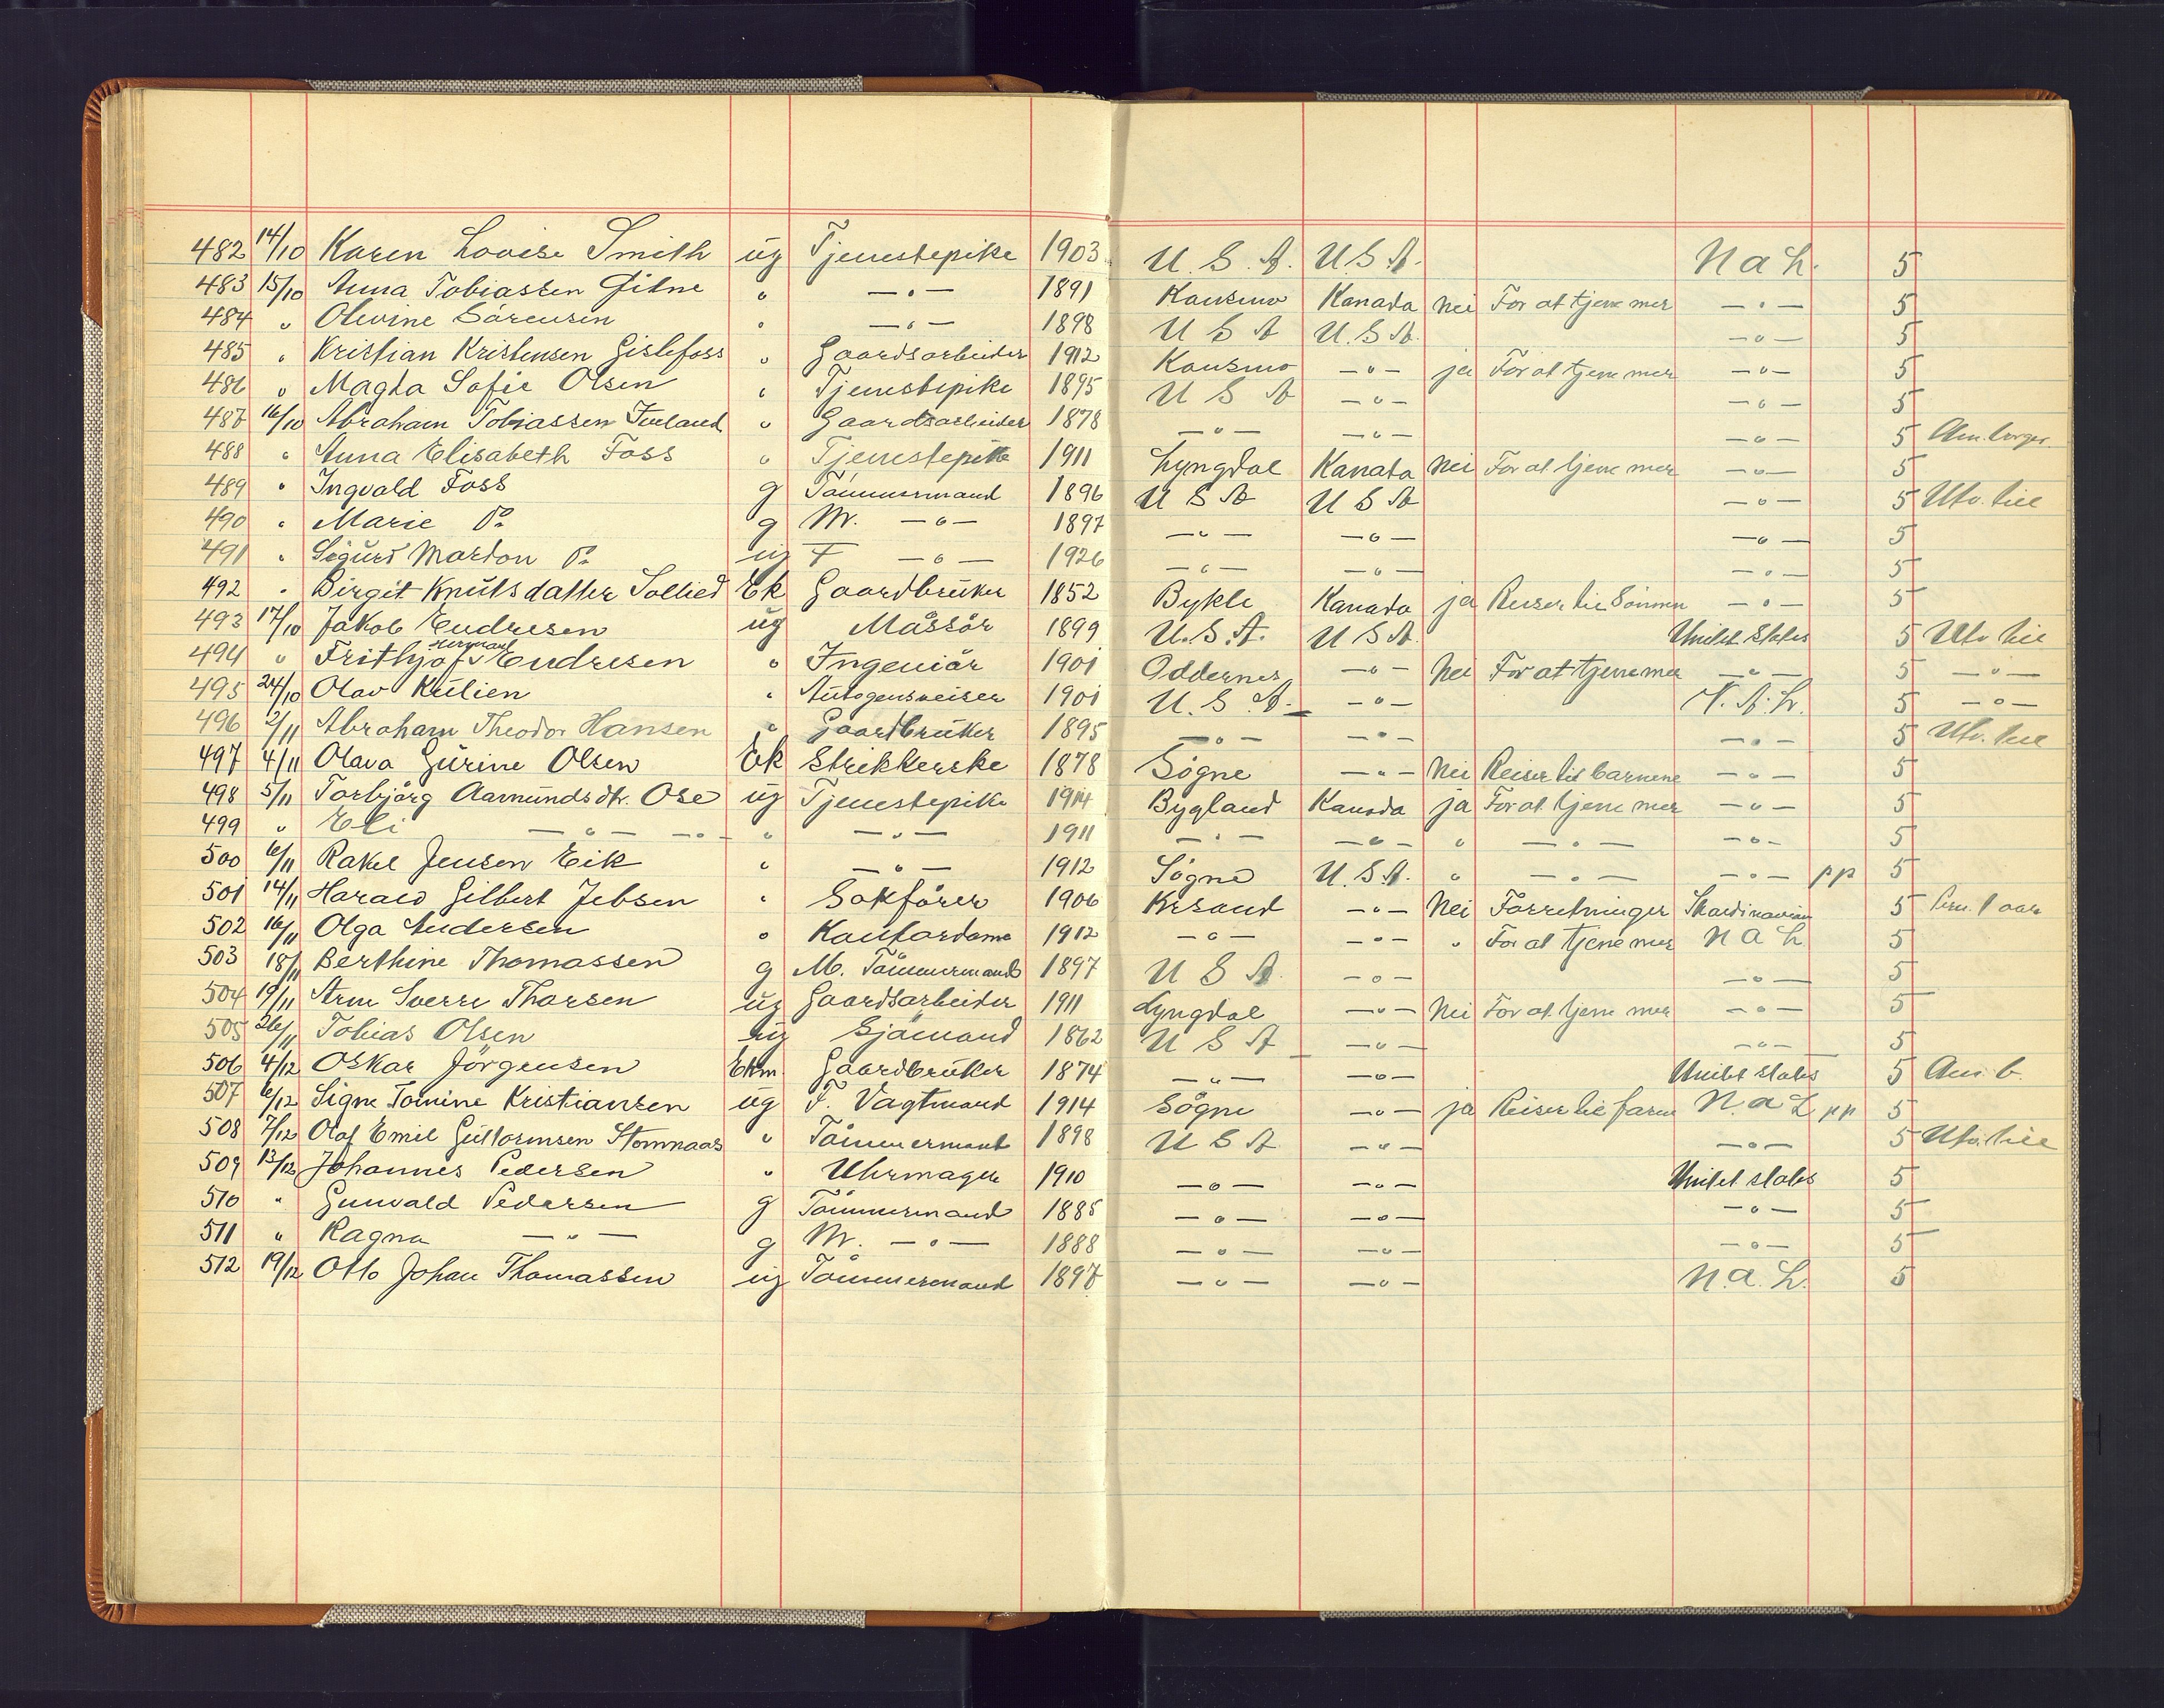 482 14/10 Karen Lovise Smith ug Tjenestepike 1903 U.S.A. U.S.A. N a L. 5
483 15/10 Anna Tobiassen Gitne " —"— 1891 Konsmo Kanada Nei For at tjene mer —"— 5
484 " Olevine Sörensen " —"— 1898 U S A U.S.A. —"— 5
485 " Kristian Kristensen Gislefoss " Gaardsarbeider 1912 Konsmo —"— ja For at tjene mer —"— 5
486 " Magda Sofie Olsen " Tjenestepike 1895 U S A —"— —"— 5
487 16/10 Abraham Tobiassen " Gaardsarbeider 1878 —"— —"— —"— 5 Am. borger
488 " Anna Elisabeth Foss " Tjenestepike 1911 Lyngdal Kanada Nei For at tjene mer —"— 5
489 " Ingvald Foss g Tömmermand 1896 U S A U S A —"— 5 Utv. till
490 " Marie Do g M. —"— 1897 —"— —"— —"— 5
491 " Sigurd Marton Do ug F —"— 1926 —"— —"— —"— 5
492 " Birgit Knutsdatter Sollied Ek Gaardbruker 1852 Bykle Kanada ja Reiser til Sönnen —"— 5
493 17/10 Jakob Endresen ug Massör 1899 U.S.A. U S A. Unitet States 5 Utv till
494 " Frithjof Hermann Endresen " Ingeniör 1901 Oddernes —"— Nei For at tjene mer —"— 5 —"—
495 24/10 Olav Kulien " Autogensveiser 1901 U.S.A. —"— N.A.L. 5 —"—
496 2/11 Abraham Theodor Hansen " Gaardbruker 1895 —"— —"— —"— 5 Utv. till
497 4/11 Olava Gurine Olsen Ek Strikkerske 1878 Sögne —"— Nei Reiser til barnene —"— 5
498 5/11 Torbjörg Aamundsdtr. Ose ug Tjenestepike 1914 Bygland Kanada ja For at tjene mer —"— 5
499 " Eli —"— —"— " —"— 1911 —"— —"— " —"— —"— 5
500 6/11 Rakel Jensen Eik " —"— 1912 Sögne U.S.A. " —"— —"— pp 5
501 14/11 Harald Gilbert Jebsen " Sakförer 1906 Krsand —"— Nei Forretninger Skandinavian 5 1 aar
502 16/11 Olga Andersen " Kontordame 1912 —"— —"— " For at tjene mer N a L 5
503 18/11 Berthine Thomassen g M. Tömmermand 1897 U S A. —"— —"— 5
504 19/11 Arne Sverre Thorsen ug Gaardsarbeider 1911 Lyngdal —"— Nei For at tjene mer —"— 5
505 26/11 Tobias Olsen ug Sjömand 1862 U S A —"— —"— 5
506 4/12 Oskar Jörgensen Ekm. Gaardbruker 1874 —"— —"— Unitet states 5 Am. b.
507 6/12 Signe Tomine Kristiansen ug F. Vagtmand 1914 Sögne —"— ja Reiser til faren N. a L pp 5
508 7/12 Olaf Emil Guttormsen Stomnaas " Tömmermand 1898 U S A —"— —"— 5 Utv. till
509 13/12 Johannes Pedersen " Uhrmager 1910 —"— —"— Unitet states 5
510 " Gunvald Pedersen g Tömmermand 1885 —"— —"— —"— 5
511 " Ragna —"— g M. —"— 1888 —"— —"— —"— 5
512 19/12 Otto Johan Thomassen ug Tömmermand 1897 —"— —"— N.a.L. 5